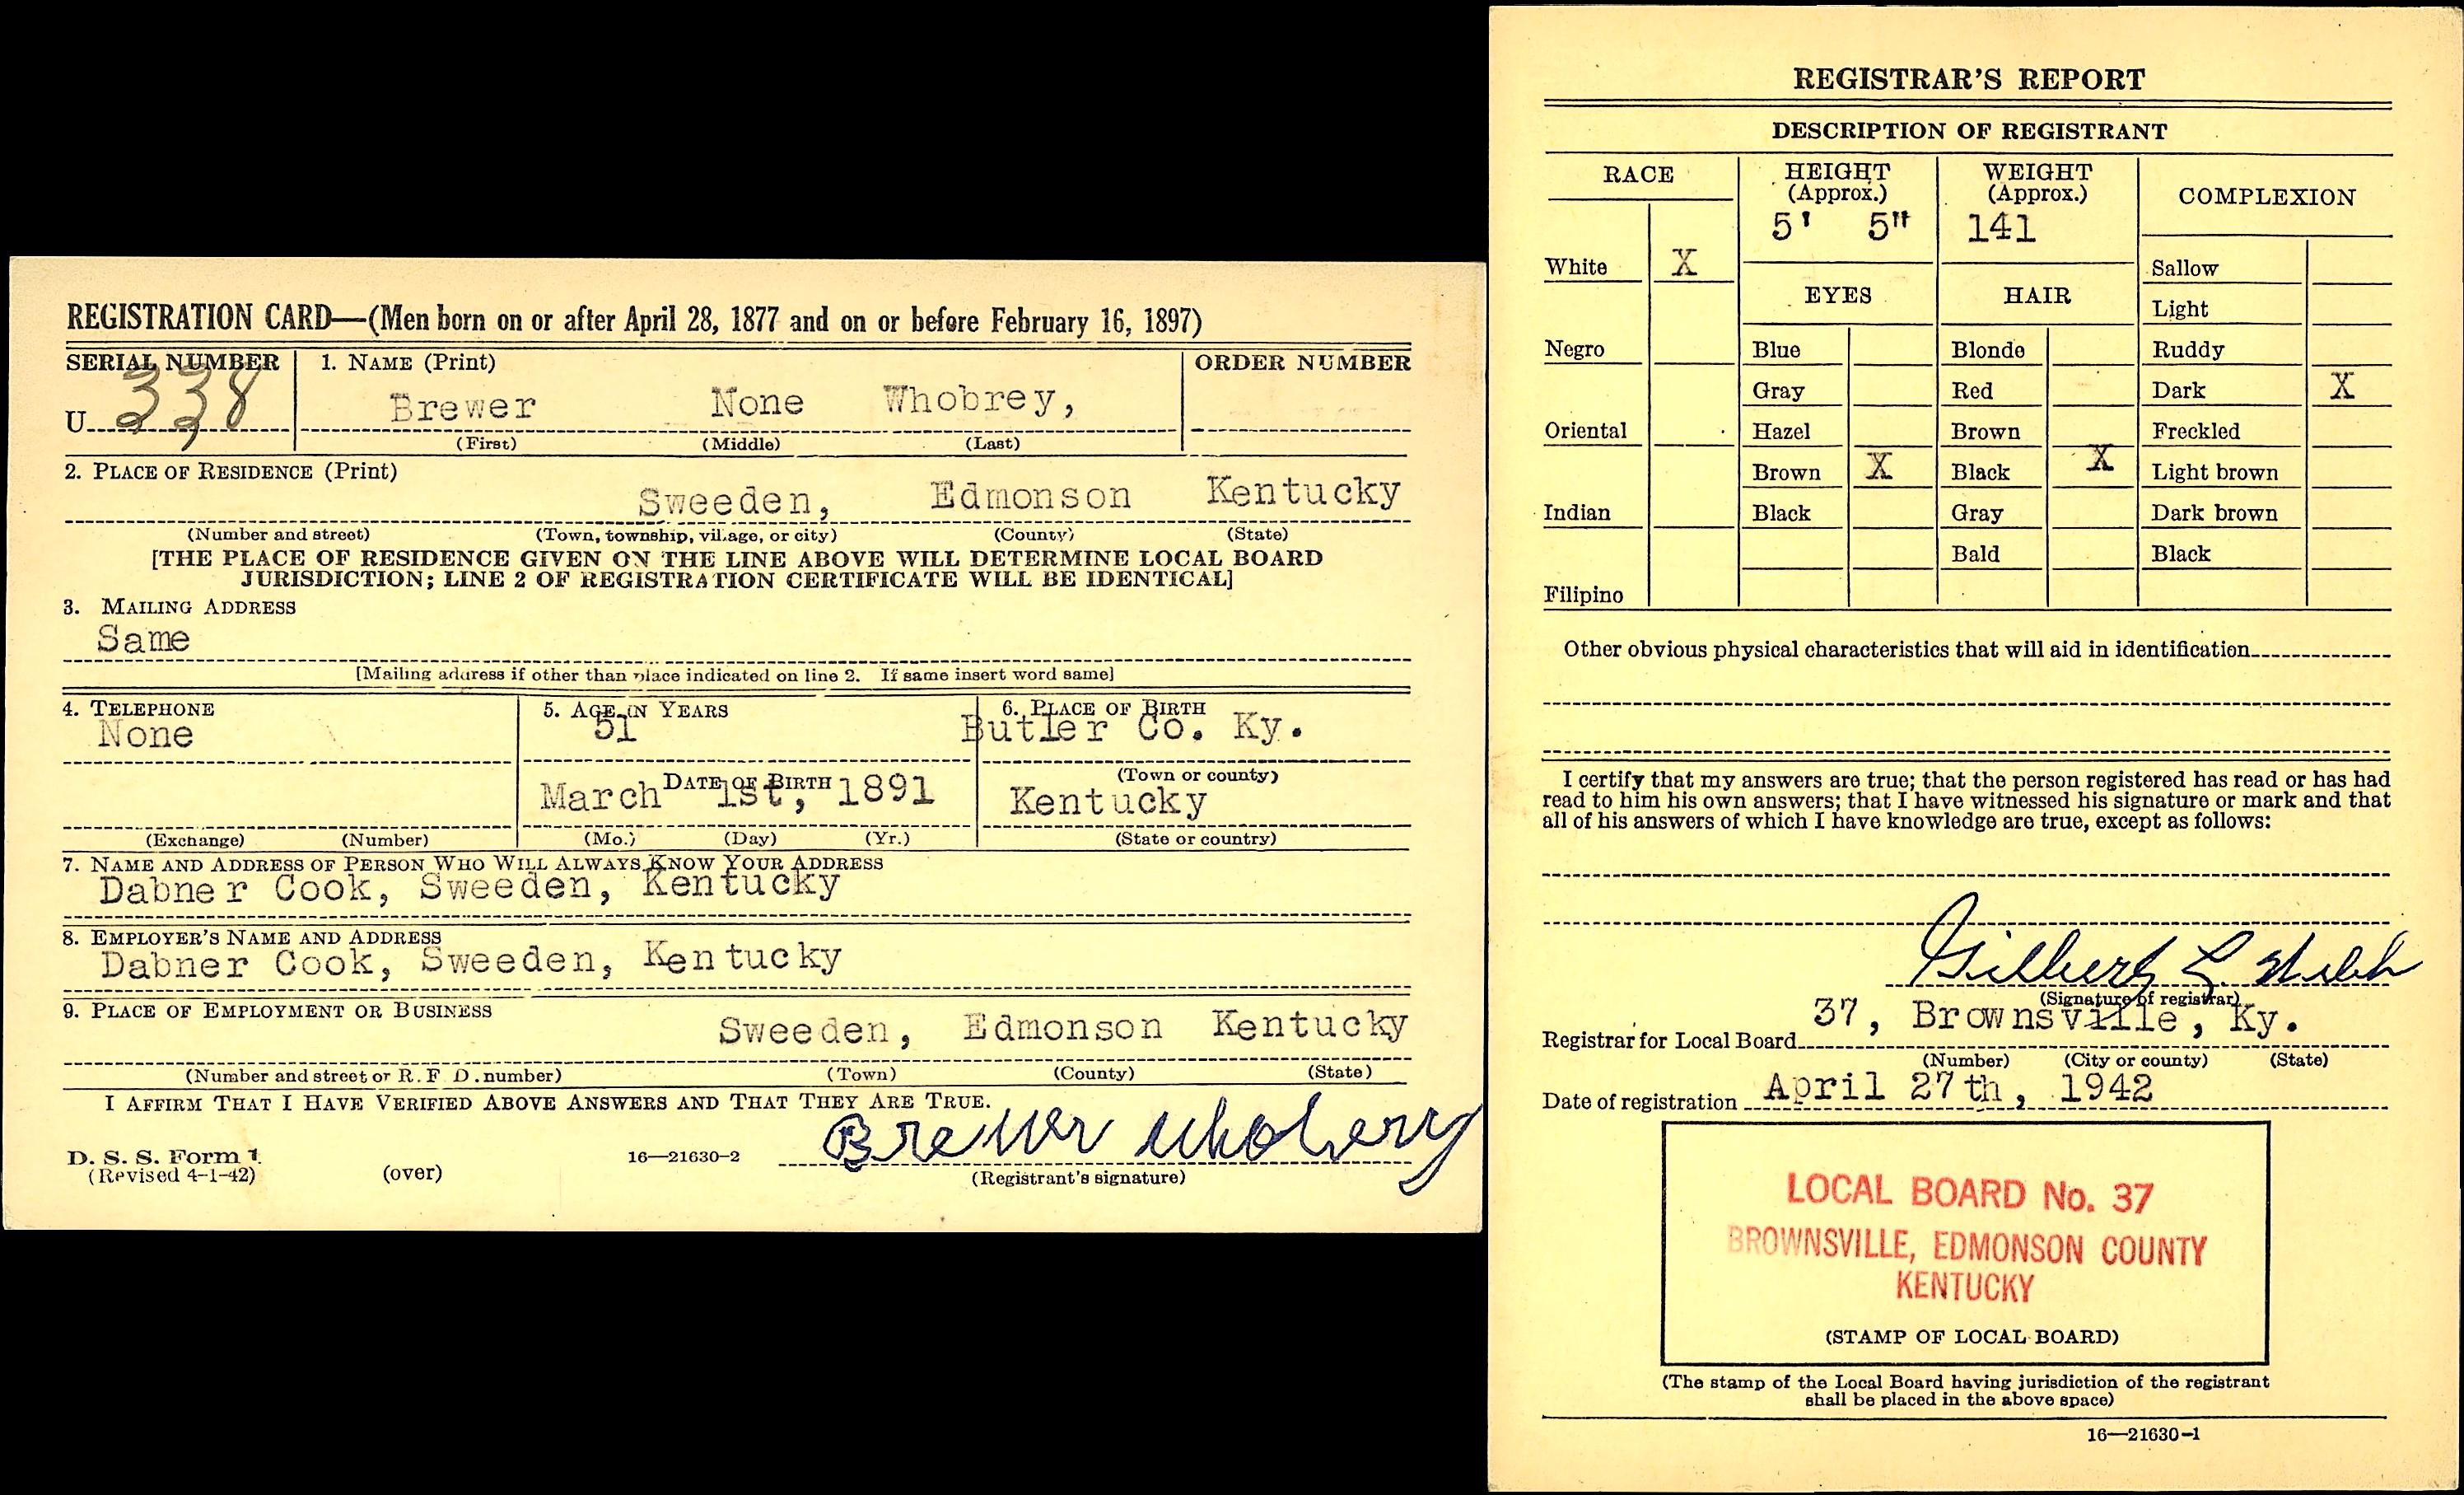 REGISTRATION CARD—(Men born on or after April 28, 1877 and on or before February 16, 1897)
SERIAL NUMBER
1. NAME (Print)
ORDER NUMBER
U 338
Brewer None Whobrey,
(First) (Middle) (Last)
2. PLACE OF RESIDENCE (Print)
Sweeden, Edmonson Kentucky
(Number and street) (Town, township, village, or city) (County) (State)
[THE PLACE OF RESIDENCE GIVEN ON THE LINE ABOVE WILL DETERMINE LOCAL BOARD
JURISDICTION; LINE 2 OF REGISTRATION CERTIFICATE WILL BE IDENTICAL]
3. MAILING ADDRESS
Same
[Mailing address if other than place indicated on line 2. If same insert word same]
4. TELEPHONE
None
(Exchange) (Number)
5. AGE IN YEARS
51
DATE OF BIRTH
March 1st, 1891
(Mo.) (Day) (Yr.)
6. PLACE OF BIRTH
Butler Co. Ky.
(Town or county)
Kentucky
(State or country)
7. NAME AND ADDRESS OF PERSON WHO WILL ALWAYS KNOW YOUR ADDRESS
Dabner Cook, Sweeden, Kentucky
8. EMPLOYER'S NAME AND ADDRESS
Dabner Cook, Sweeden, Kentucky
9. PLACE OF EMPLOYMENT OR BUSINESS
Sweeden, Edmonson Kentucky
(Number and street or R. F. D. number) (Town) (County) (State)
I AFFIRM THAT I HAVE VERIFIED ABOVE ANSWERS AND THAT THEY ARE TRUE.
Brewer Whobery
D. S. S. Form 1
(Revised 4-1-42) (over)
16—21630-2
(Registrant's signature)
REGISTRAR'S REPORT
DESCRIPTION OF REGISTRANT
RACE
White X
Negro
Oriental
Indian
Filipino
HEIGHT
(Approx.)
5' 5"
WEIGHT
(Approx.)
141
EYES
Blue
Gray
Hazel
Brown X
Black
HAIR
Blonde
Red
Brown
Black X
Gray
Bald
COMPLEXION
Sallow
Light
Ruddy
Dark X
Freckled
Light brown
Dark brown
Black
Other obvious physical characteristics that will aid in identification
I certify that my answers are true; that the person registered has read or has had
read to him his own answers; that I have witnessed his signature or mark and that
all of his answers of which I have knowledge are true, except as follows:
Gilbert L
(Signature of registrar)
Registrar for Local Board 37, Brownsville, Ky.
(Number) (City or county) (State)
Date of registration April 27th, 1942
LOCAL BOARD No. 37
BROWNSVILLE, EDMONSON COUNTY
KENTUCKY
(STAMP OF LOCAL BOARD)
(The stamp of the Local Board having jurisdiction of the registrant
shall be placed in the above space)
16—21630-1